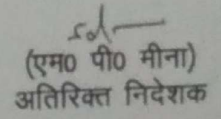 sd—
(एम0 पी0 मीना)
अतिरिक्त निदेशक